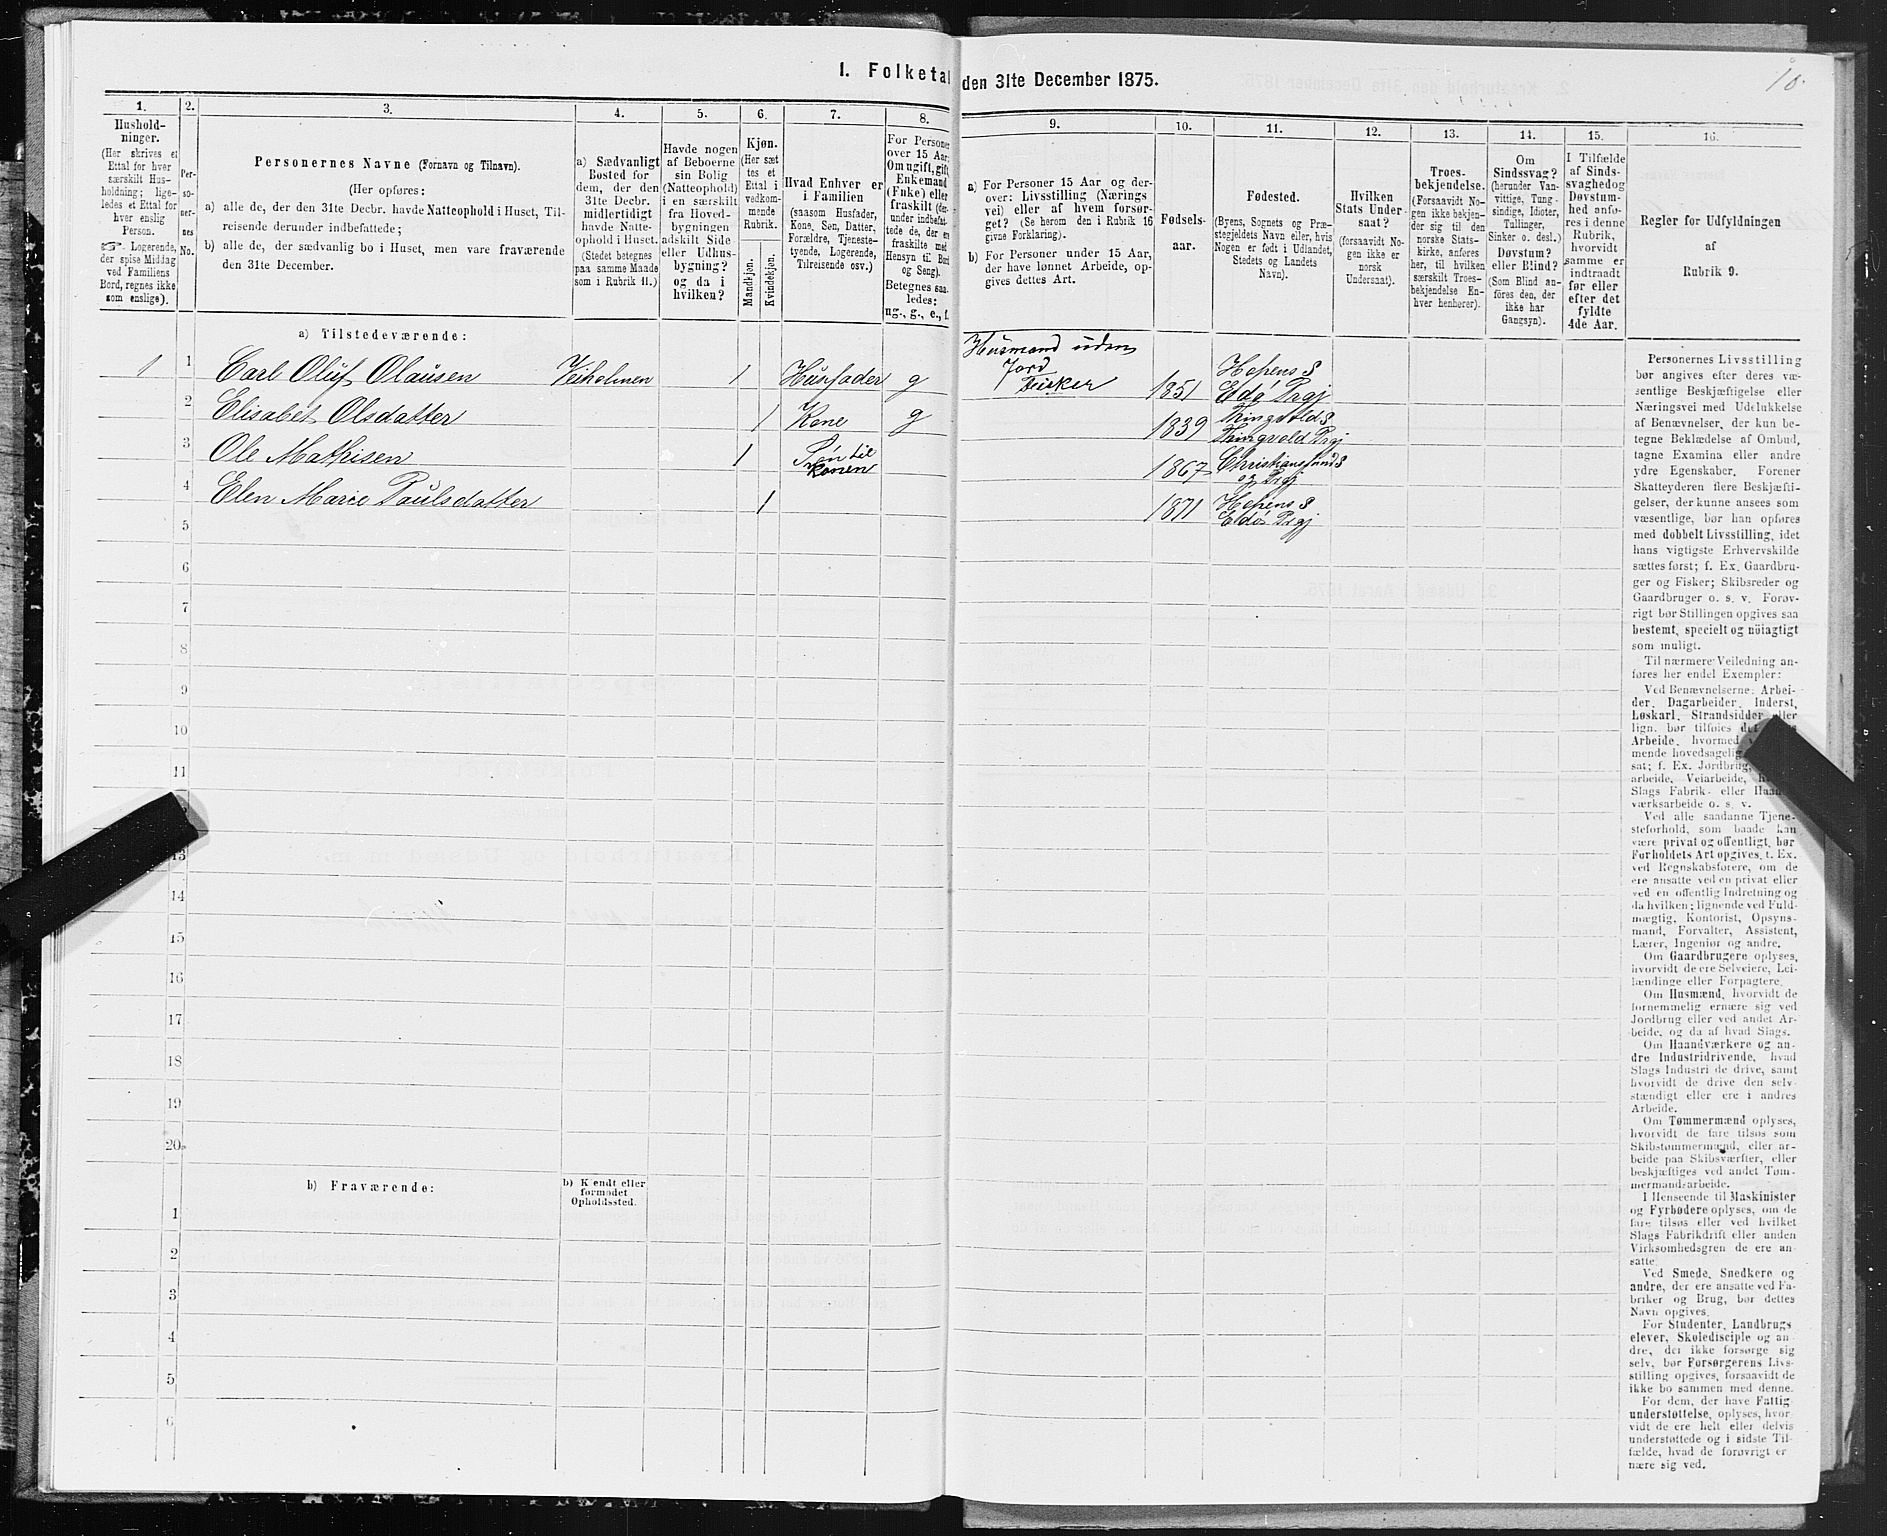 1. Folketal den 31te December 1875.
10.
1.
Hushold-
ninger.
(Her skrives et
Ettal for hver
særskilt Hus-
holdning; lige-
ledes et Ettal for
hver enslig
Person.
☞ Logerende,
der spise Middag
ved Familiens
Bord, regnes ikke
som enslige).
2.
Per-
so-
ner-
nes
No.
3.
Personernes Navne (Fornavn og Tilnavn).
(Her opføres:
a) alle de, der den 31te Decbr. havde Natteophold i Huset, Til-
reisende derunder indbefattede;
b) alle de, der sædvanlig bo i Huset, men vare fraværende
den 31te December.
4.
a) Sædvanligt
Bosted for
dem, der den
31te Decbr.
midlertidigt
havde Natte-
ophold i Huset.
(Stedet betegnes
paa samme Maade
som i Rubrik 11.)
5.
Havde nogen
af Beboerne
sin Bolig
(Natteophold)
i en særskilt
fra Hoved-
bygningen
adskilt Side
eller Udhus-
bygning?
og da i
hvilken?
6.
Kjøn.
(Her sæt
tes et
Ettal i
vedkom-
mende
Rubrik.
Mandkjøn.
Kvindekjøn.
7.
Hvad Enhver er
i Familien
(saasom Husfader,
Kone, Søn, Datter,
Forældre, Tjeneste-
tyende, Logerende,
Tilreisende osv.)
8.
For Personer
over 15 Aar:
Om ugift, gift,
Enkemand
(Enke) eller
fraskilt (der-
under indbefat-
tede de, der ere
fraskilte med
Hensyn til Bord
og Seng).
Betegnes saa-
ledes:
ug., g., e., f.
9.
a) For Personer 15 Aar og der-
over: Livsstilling (Nærings
vei) eller af hvem forsør-
get? (Se herom den i Rubrik 16
givne Forklaring).
b) For Personer under 15 Aar,
der have lønnet Arbeide, op-
gives dettes Art.
10.
Fødsels-
aar.
11.
Fødested.
(Byens, Sognets og Præ-
stegjeldets Navn eller, hvis
Nogen er født i Udlandet,
Stedets og Landets
Navn).
12.
Hvilken
Stats Under
saat?
(forsaavidt No-
gen ikke er
norsk
Undersaat).
13.
Troes-
bekjendelse.
(Forsaavidt No-
gen ikke bekjen-
der sig til den
norske Stats-
kirke, anføres
her, til hvilken
særskilt Troes-
bekjendelse En-
hver henhører).
14.
Om
Sindssvag?
(herunder Van-
vittige, Tung-
sindige, Idioter,
Tullinger,
Sinker o. desl.)
Døvstum?
eller Blind?
(Som Blind an-
føres den, der
ikke har
Gangsyn).
15.
I Tilfælde
af Sinds-
svaghed og
Døvstum-
hed anfø-
res i denne
Rubrik,
hvorvidt
samme er
indtraadt
før eller
efter det
fyldte
4de Aar.
16.
Regler for Udfyldningen
af
Rubrik 9.
a) Tilstedeværende:
1 1 Carl Oluf Olausen Veiholmen 1 Husfader g Husmand uden Jord Fisker 1851 Hopens S Edø Prgj
2 Elisabet Olsdatter 1 Kone g 1839 Thingvolds S Thingvold Prgj
3 Ole Mathisen 1 Søn til Konen 1867 Christianssunds S og Prgj
4 Elen Marie Paulsdatter 1 1871 Hopens S Edø Prgj
5
6
7
8
9
10
11
13
14
15
16
17
18
19
20
b) Fraværende:
b) Kjendt eller
formodet
Opholdssted.
1
2
3
4
5
6
Personernes Livsstilling
bør angives efter deres væ-
sentlige Beskjæftigelse eller
Næringsvei med Udelukkelse
af Benævnelser, der kun be-
tegne Beklædelse af Ombud,
tagne Examina eller andre
ydre Egenskaber. Forener
Skatteyderen flere Beskjæfti-
gelser, der kunne ansees som
væsentlige, bør han opføres
med dobbelt Livsstilling, idet
hans vigtigste Erhvervskilde
sættes først; f. Ex. Gaardbru-
ger og Fisker; Skibsreder og
Gaardbruger o. s. v. Forøv-
rigt bør Stillingen opgives saa
bestemt, specielt og nöiagtigt
som muligt.
Til nærmere Veiledning an-
føres her endel Exempler:
Ved Benævnelserne: Arbei-
der, Dagarbeider, Inderst,
Løskarl, Strandsidder eller
lign. bør tilføies det
Arbeide, hvormed
mende hovedsagelig
sat; f. Ex. Jordbrug,
arbeide, Veiarbeide,
Slags Fabrik- eller Haand-
værksarbeide o. s. v.
Ved alle saadanne Tjene-
steforhold, som baade kan
være privat og offentligt, bør
Forholdets Art opgives, t. Ex.
ved Regnskabsførere, om de
ere ansatte ved en privat eller
ved en offentlig Indretning og
da hvilken; lignende ved Fuld-
mægtig, Kontorist, Opsyns-
mand, Forvalter, Assistent,
Lærer, Ingeniør og andre.
Om Gaardbrugere oplyses,
hvorvidt de ere Selveiere, Lei-
lændinge eller Forpagtere.
Om Husmænd, hvorvidt de
fornemmelig ernære sig ved
Jordbrug eller ved andet Ar-
beide, og da af hvad Slags.
Om Haandværkere og an-
dre Industridrivende, hvad
Slags Industri de drive, samt
hvorvidt de drive den selv-
stændigt eller ere i andres
Arbeide.
Om Tømmermænd oplyses,
hvorvidt de fare tilsøs som
Skibstømmermænd, eller ar-
beide paa Skibsværfter, eller
beskjæftiges ved andet Tøm-
mermandsarbeide.
I Henseende til Maskinister
og Fyrbødere oplyses, om de
fare tilsøs eller ved hvilket
Slags Fabrikdrift eller anden
Virksomhedsgren de ere an-
satte.
Ved Smede, Snedkere og
andre, der ere ansatte ved Fa-
briker og Brug, bør dettes
Navn opgives.
For Studenter, Landbrugs
elever, Skoledisciple og an-
dre, der ikke forsørge sig
selv, bør Forsørgerens Livs-
stilling opgives, forsaavidt de
ikke bo sammen med denne.
For dem, der have Fattig
understøttelse, oplyses, hvor-
vidt de ere helt eller delvis
understøttede og i sidste Til-
fælde, hvad de forøvrigt er
nære sig ved.